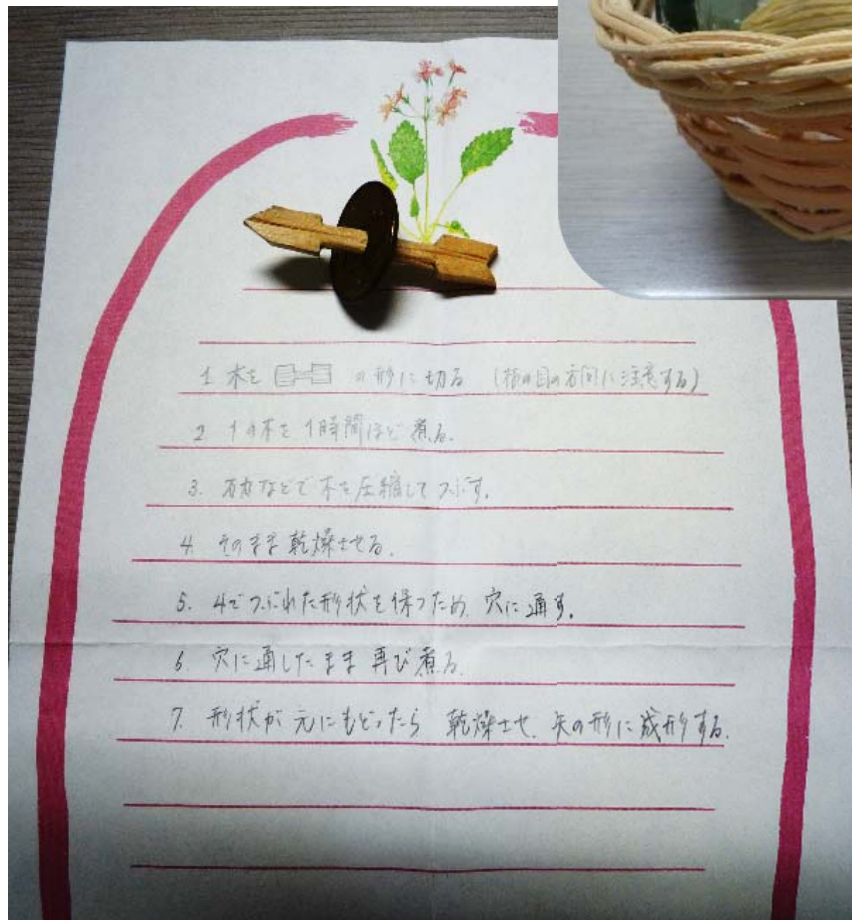 1 木を の形に切る (木の目の方向に注意する)
2 1の木を 1時間ほど 煮る.
3. 万力などで 木を圧縮して つぶす.
4. そのまま 乾燥させる.
5. 4でつぶれた形状を保つため 穴に通す.
6. 穴に通したまま 再び煮る.
7. 形状が 元にもどったら 乾燥させ. 矢の形に成形する.